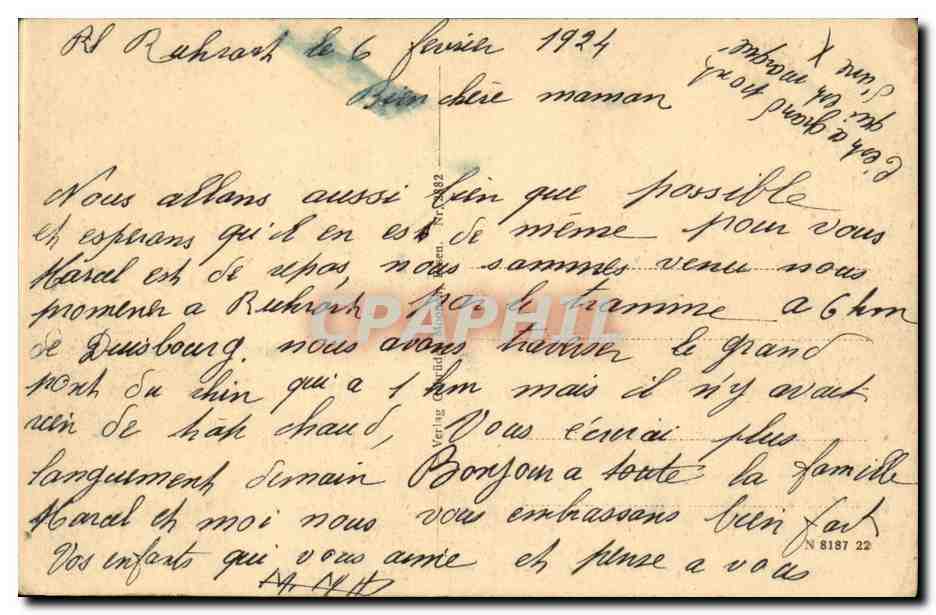 Rt Ruhrort le 6 fevrier 1924
Bien chère maman
c'est a grand pont
qui est marque
d'une X
Nous allons aussi bien que possible
et esperons qu'il en est de même pour vous
Marcel est de repos, nous sommes venu nous
promener a Ruhrort par le tramme a 6 km
de Duisbourg. nous avons traverser le grand
pont du rhin qui a 1 km mais il n'y avait
rien de trop chaud, Vous écrirai plus
longuement demain Bonjour a toute la famille
Marcel et moi nous vous embrassons bien fort
Vos enfants qui vous aime et pense a vous
Nr. 2882
Verlag Gebrüder Essen.
N 8187 22
CPAPHIL